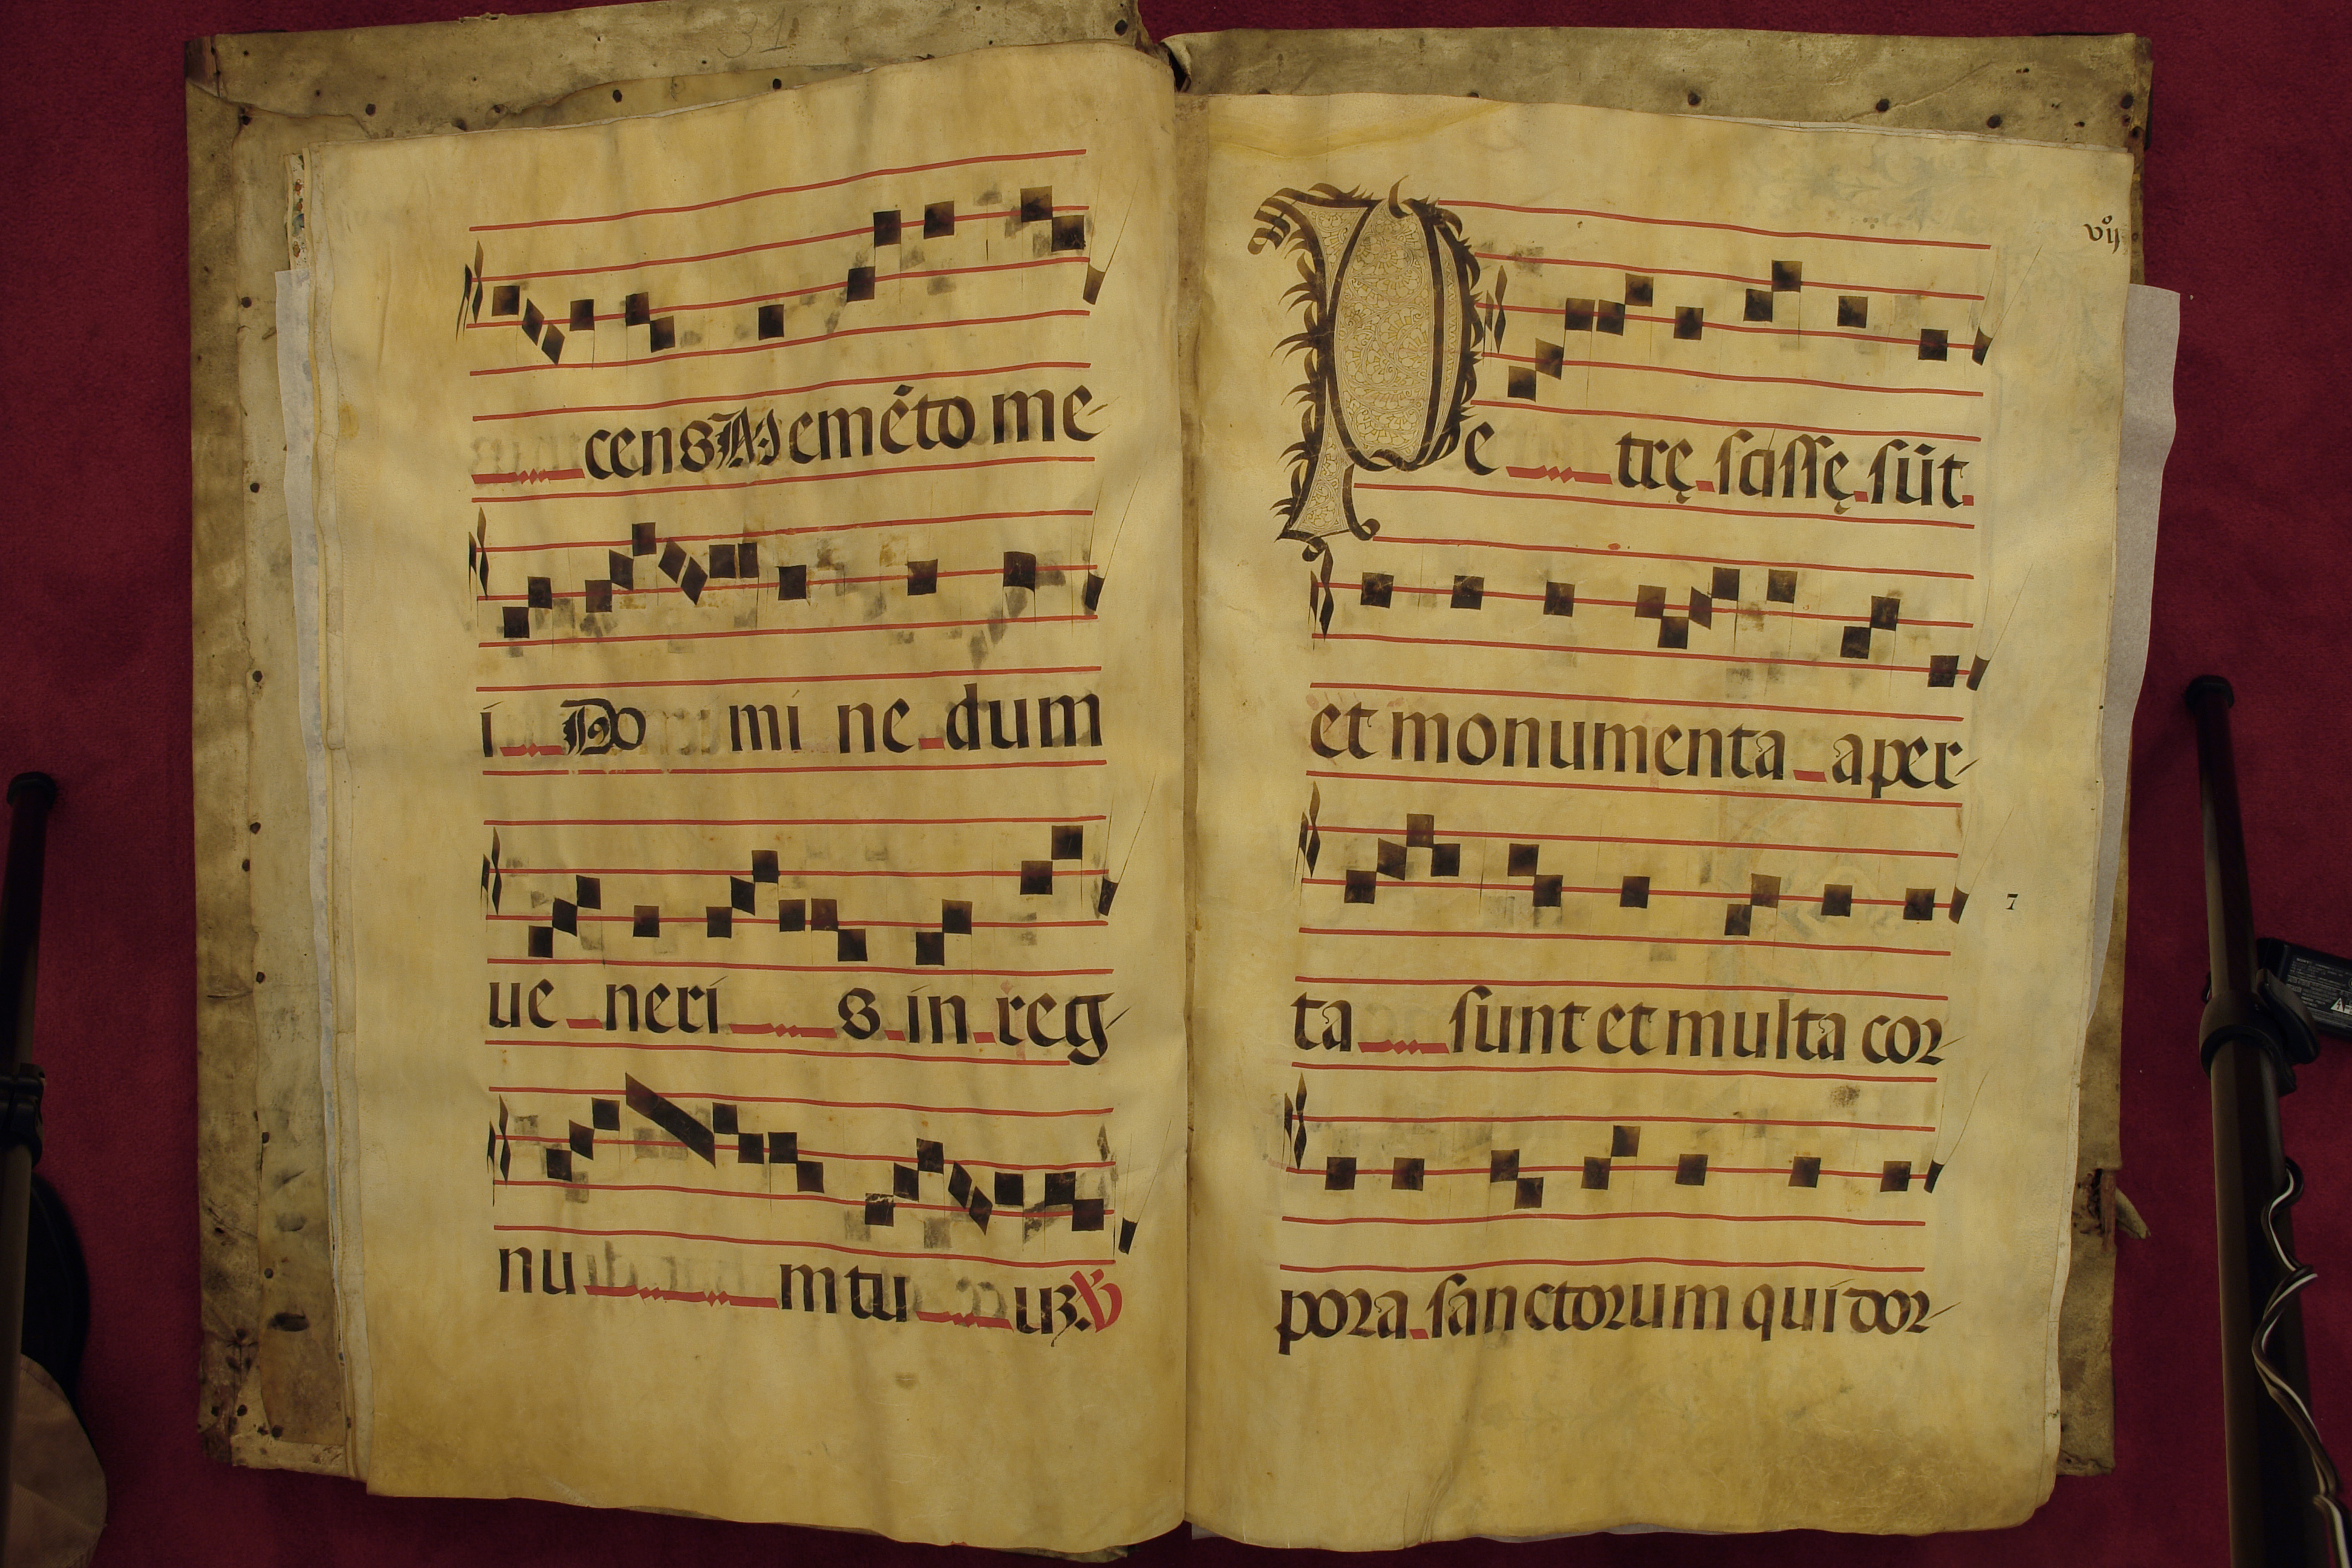 31
cens Memēto me-
i Do mi ne dum
ue neri s in reg-
nu m tu uꝫ. ℣
vijº
Pe trę scissę sūt.
et monumenta aper-
ta sunt et multa cor-
7
pora sanctorum qui dor-